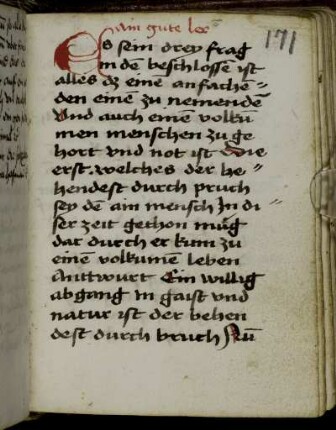 ain gute ler
171
Es sein drey frag
in dē beschlossē ist
alles dz einē anfache⸗
den einē zu nemendē
Vnd auch einē volkū
men menschen zu ge
hort vnd not ist Die
erst, welches der be⸗
hendest durch pruch
sey den ain mensch In di
ser zeit gethon müg
dar durch er kum zu
einē volkumē leben
Anttwurt Ein willig
abgang in gaist vnd
natur ist der behen
dest durch bruch Nū